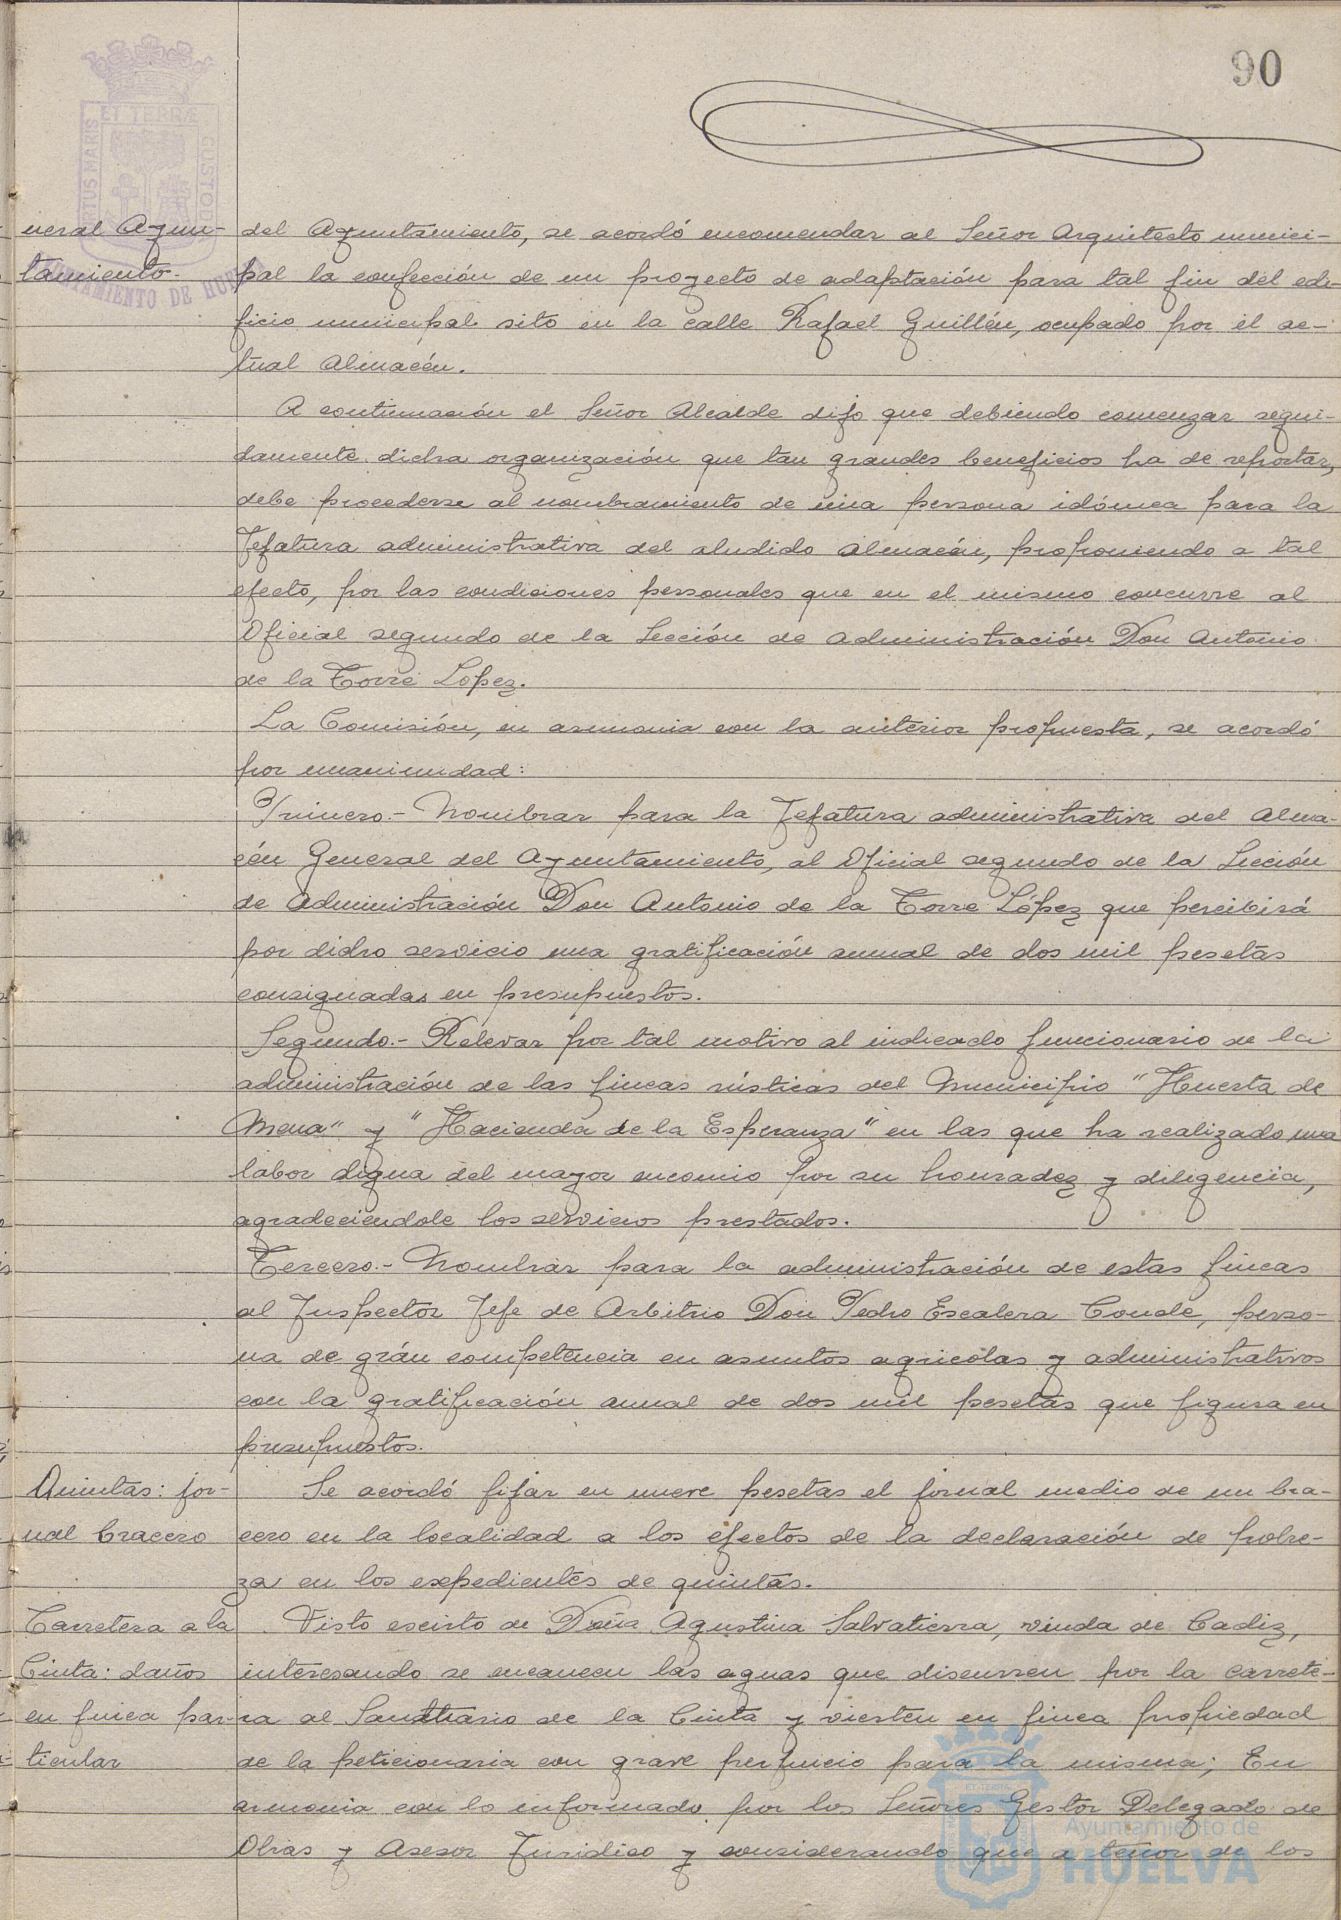 90
PORTUS MARIS
ET TERRÆ
CUSTODIA
AYUNTAMIENTO DE HUELVA
neral Ayun-
tamiento.
del Ayuntamiento, se acordó encomendar al Señor Arquitecto munici-
pal la confección de un proyecto de adaptación para tal fin del edi-
ficio municipal sito en la calle Rafael Guillén, ocupado por el ac-
tual Almacén.
A continuación el Señor Alcalde dijo que debiendo comenzar segui-
damente dicha organización que tan grandes beneficios ha de reportar,
debe procederse al nombramiento de una persona idónea para la
Jefatura administrativa del aludido Almacén, proponiendo a tal
efecto, por las condiciones personales que en el mismo concurre al
Oficial segundo de la Sección de Administración Don Antonio
de la Torre Lopez.
La Comisión, en armonia con la anterior propuesta, se acordó
por unanimidad:
Primero.- Nombrar para la Jefatura administrativa del Alma-
cén General del Ayuntamiento, al Oficial segundo de la Sección
de Administración Don Antonio de la Torre López que percibirá
por dicho servicio una gratificación anual de dos mil pesetas
consignadas en presupuestos.
Segundo.- Relevar por tal motivo al indicado funcionario de la
administración de las fincas rústicas del Municipio "Huerta de
Mena" y "Hacienda de la Esperanza" en las que ha realizado una
labor digna del mayor encomio por su honradez y diligencia,
agradeciendole los servicios prestados.
Tercero.- Nombrar para la administración de estas fincas
al Inspector Jefe de Arbitrio Don Pedro Escalera Conde, perso-
na de grán competencia en asuntos agricolas y administrativos
con la gratificación anual de dos mil pesetas que figura en
presupuestos.
Quintas: jor-
nal bracero
Se acordó fijar en nueve pesetas el jornal medio de un bra-
cero en la localidad a los efectos de la declaración de pobre-
za en los expedientes de quintas.
Carretera a la
Cinta: daños
en finca par-
ticular
Visto escrito de Doña Agustina Salvatierra, viuda de Cadiz,
interesando se encaucen las aguas que discurren por la carrete-
ra al Santuario de la Cinta y vierten en finca propiedad
de la peticionaria con grave perjuicio para la misma; En
armonia con lo informado por los Señores Gestor Delegado de
Obras y Asesor Juridico y considerando que a tenor de los
Ayuntamiento de
HUELVA